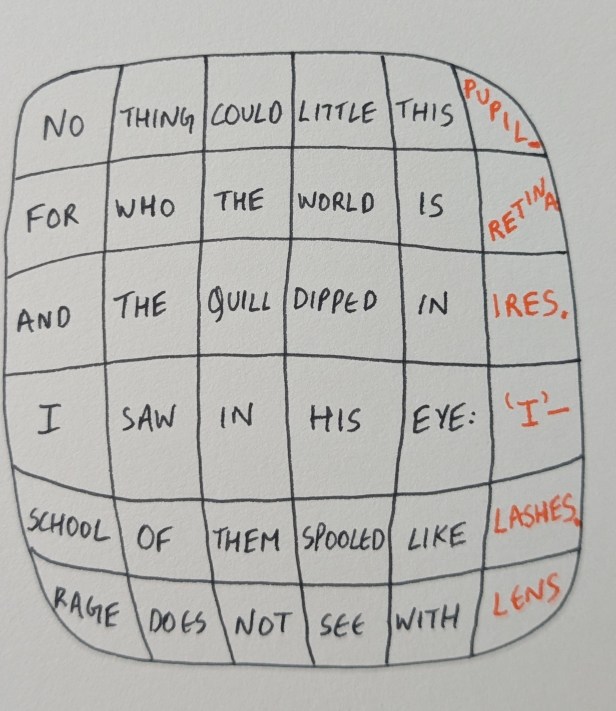 NO THING COULD LITTLE THIS PUPIL-
FOR WHO THE WORLD IS RETINA
AND THE QUILL DIPPED IN IRES.
I SAW IN HIS EYE: 'I'-
SCHOOL OF THEM SPOOLED LIKE LASHES.
RAGE DOES NOT SEE WITH LENS